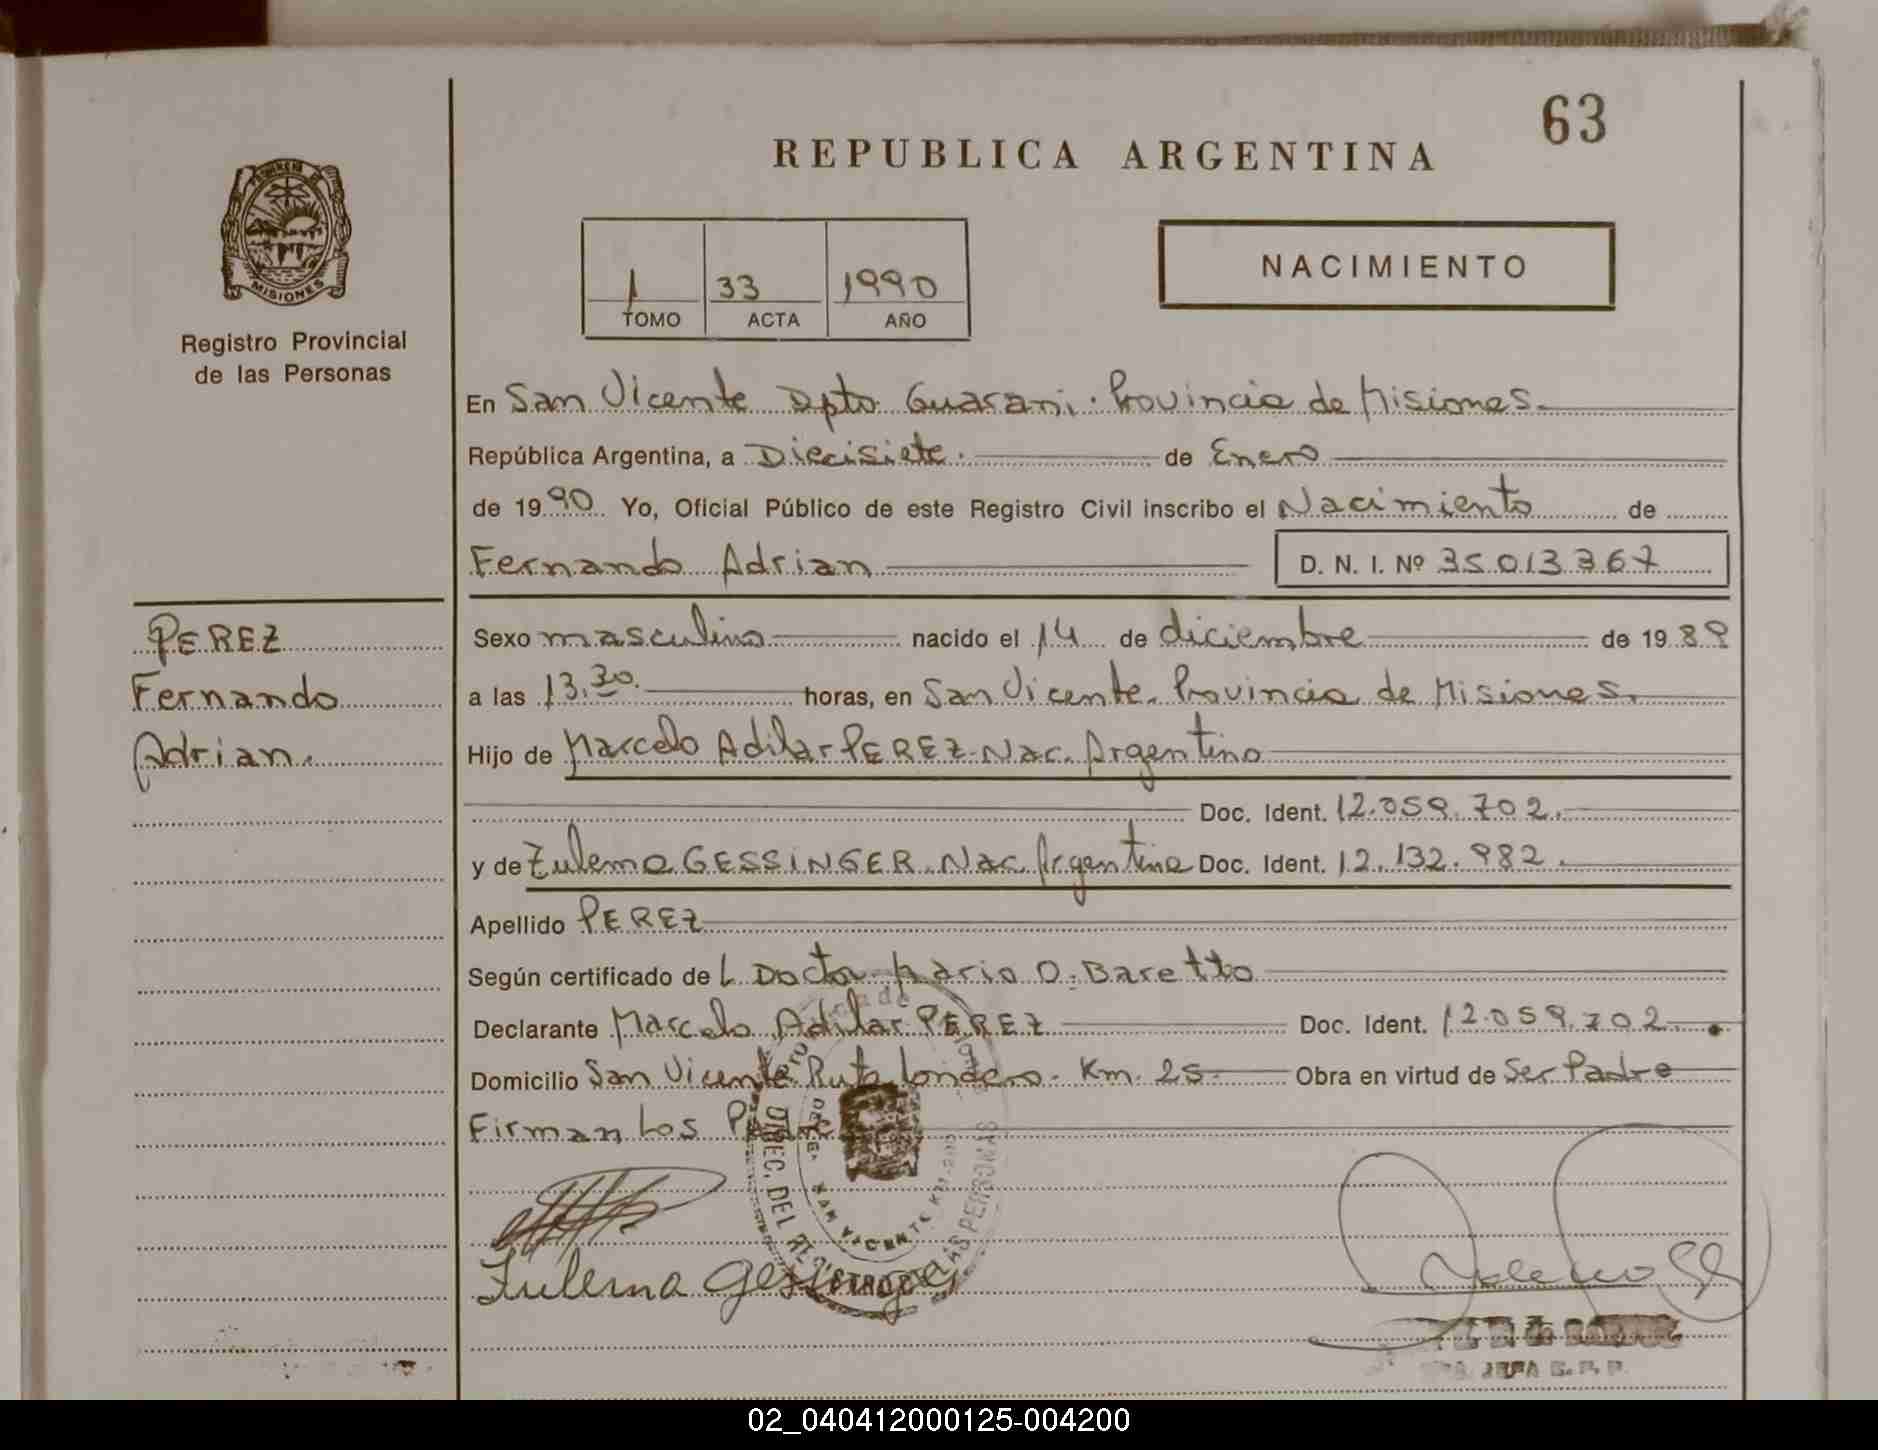 63
REPUBLICA ARGENTINA
PROVINCIA DE
MISIONES
Registro Provincial
de las Personas
1 33 1990
TOMO ACTA AÑO
NACIMIENTO
En San Vicente Dpto Guarani. Provincia de Misiones.
República Argentina, a Diecisiete. de Enero
de 1990 Yo, Oficial Público de este Registro Civil inscribo el Nacimiento de
Fernando Adrian D. N. I. Nº 35013367
PEREZ
Fernando
Adrian.
Sexo masculino nacido el 14 de diciembre de 1989
a las 13.30. horas, en San Vicente. Provincia de Misiones.
Hijo de Marcelo Adilar PEREZ. Nac. Argentino
Doc. Ident. 12.059.702.
y de Zulema GESSINGER. Nac. Argentina Doc. Ident. 12.132.982.
Apellido PEREZ
Según certificado de L Doctor Mario O. Baretto
Declarante Marcelo Adilar PEREZ Doc. Ident. 12.059.702.
Domicilio San Vicente Ruta Londero. Km. 25. Obra en virtud de Ser Padre
Firman Los
DIREC. DEL REGISTRO DE LAS PERSONAS
SAN VICENTE
Zulema Gessinger
JEFA
02_040412000125-004200